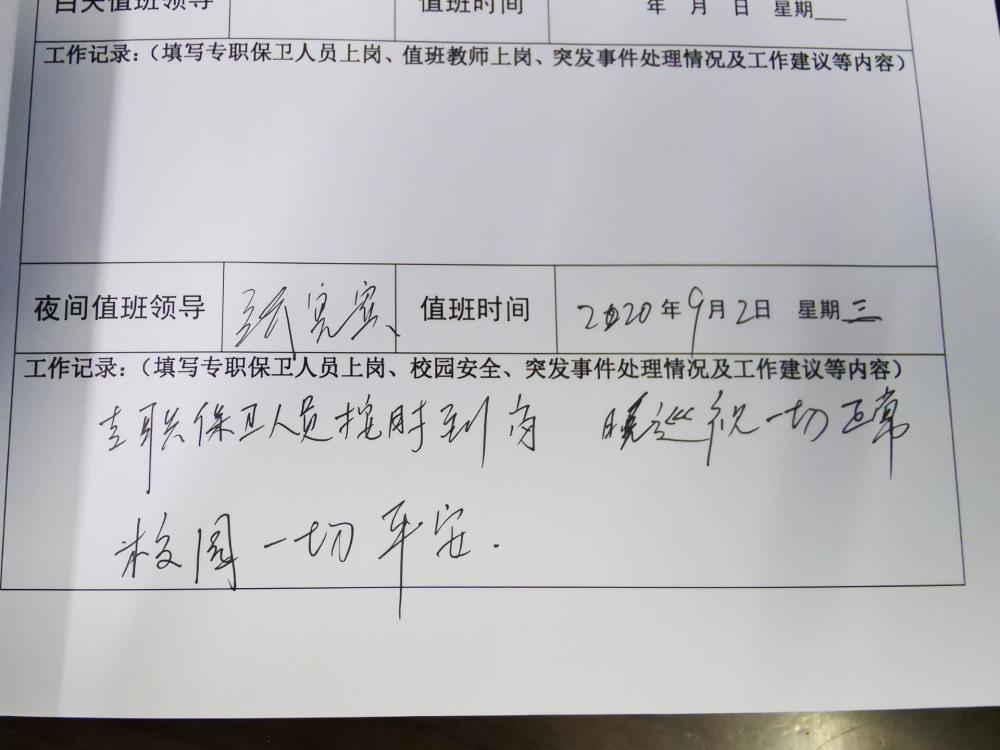 白天值班领导 值班时间 年 月 日 星期
工作记录：（填写专职保卫人员上岗、值班教师上岗、突发事件处理情况及工作建议等内容）
夜间值班领导 张宪宾 值班时间 2020年9月2日 星期三
工作记录：（填写专职保卫人员上岗、校园安全、突发事件处理情况及工作建议等内容）
专职保卫人员按时到岗 晚巡视一切正常
校园一切平安.